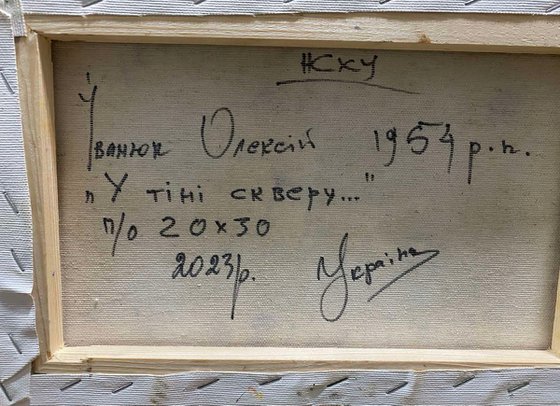 НСХУ
Іванюк Олексій 1954 р.н.
„У тіні скверу..."
п/о 20х30
2023р. Україна